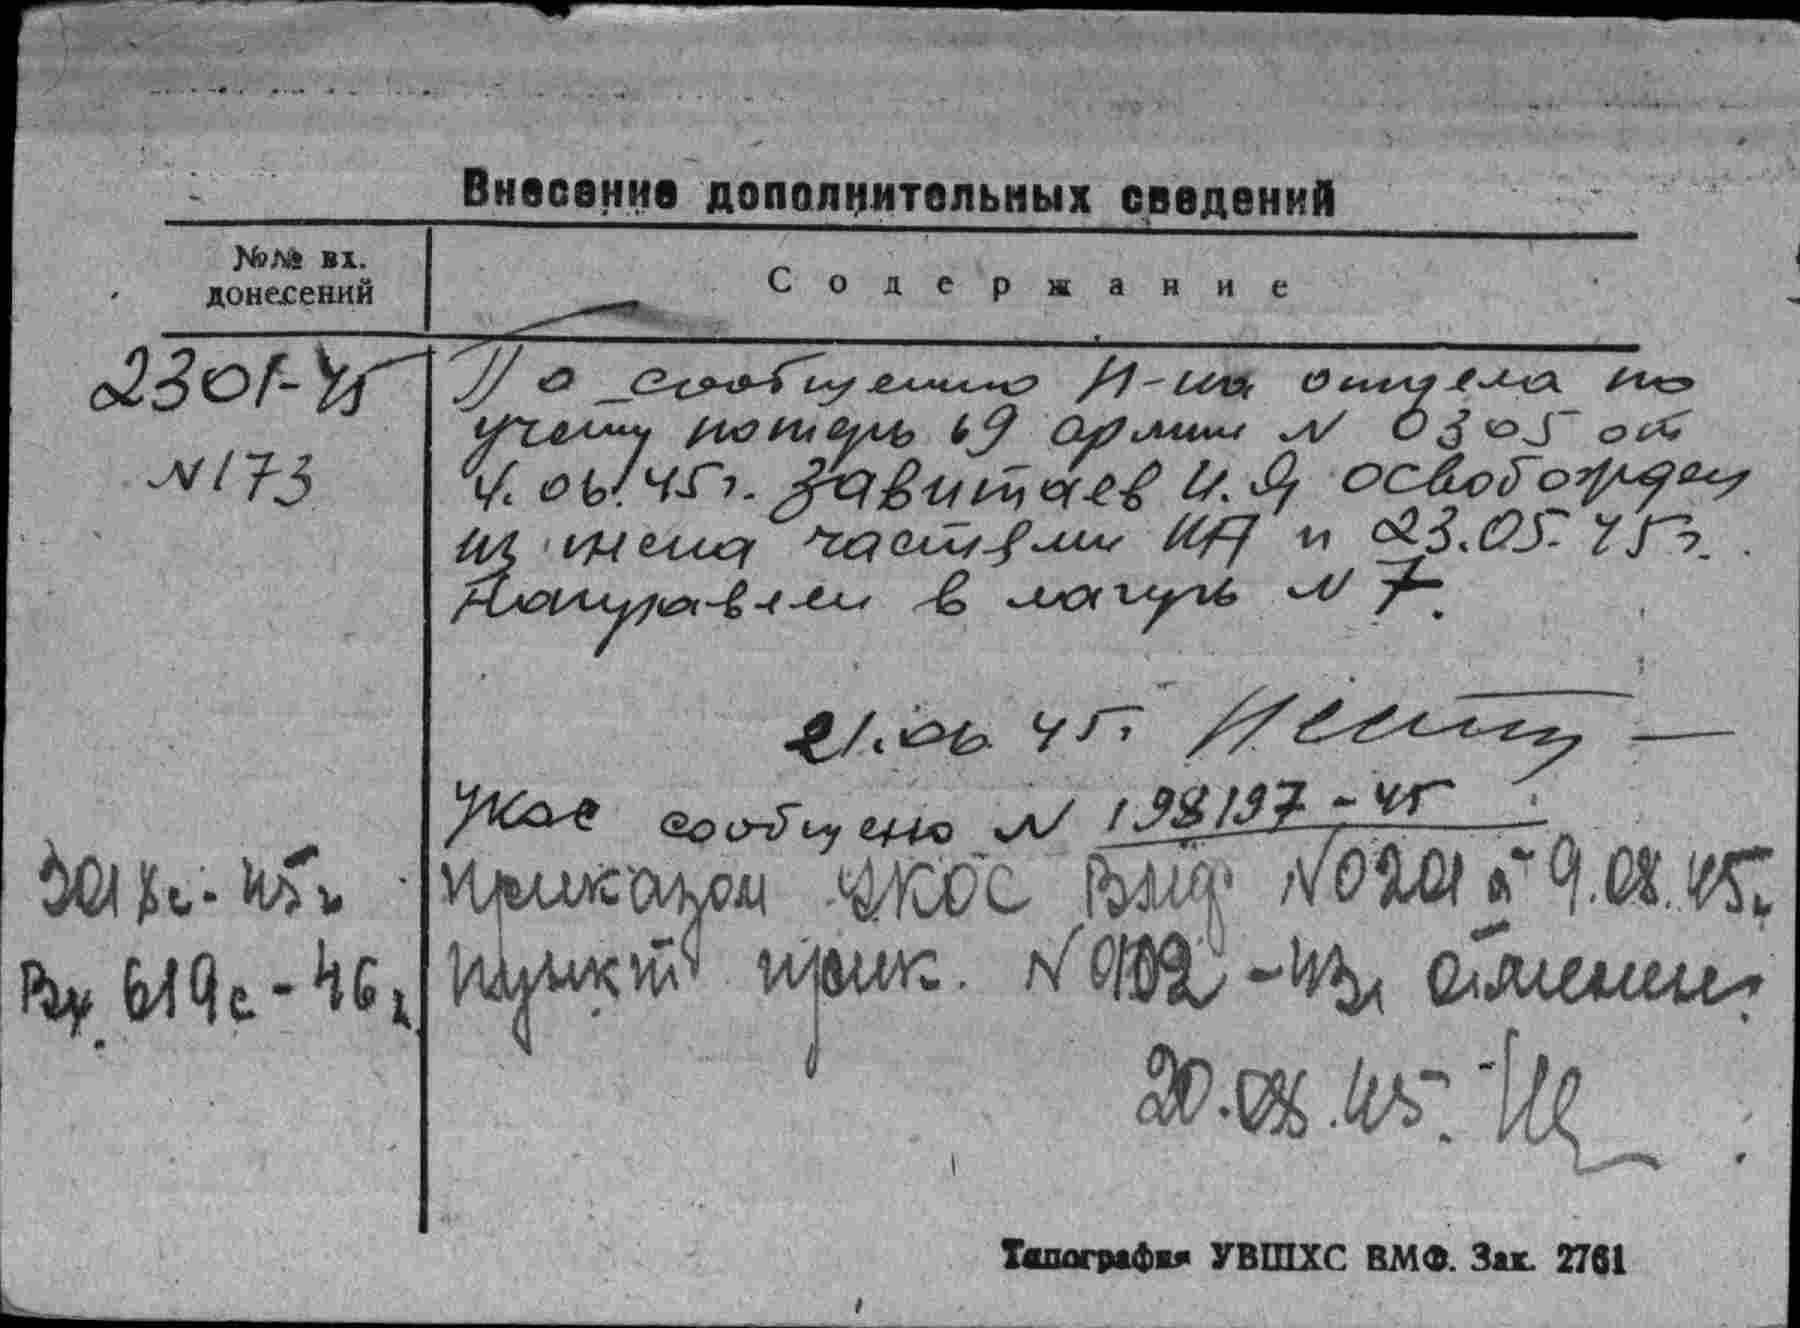 Внесение дополнительных сведений
№№ вх.
донесений
Содержание
2301-45
N173
По сообщению Н-ка отдела по
учету потерь 69 армии N 0305 от
4.06.45г. Завитаев И.Я освобожден
из плена частями КА и 23.05.45г.
Направлен в лагерь N 7.
21.06.45г.
Укос сообщено N 198197-45
Приказом УКОС ВМФ N0201 от 9.08.45г
пункт прик. N 0102-43г отменен.
3018с-45г
Вх. 619с-46г.
20.08.45.
Типография УВШХС ВМФ. Зак. 2761